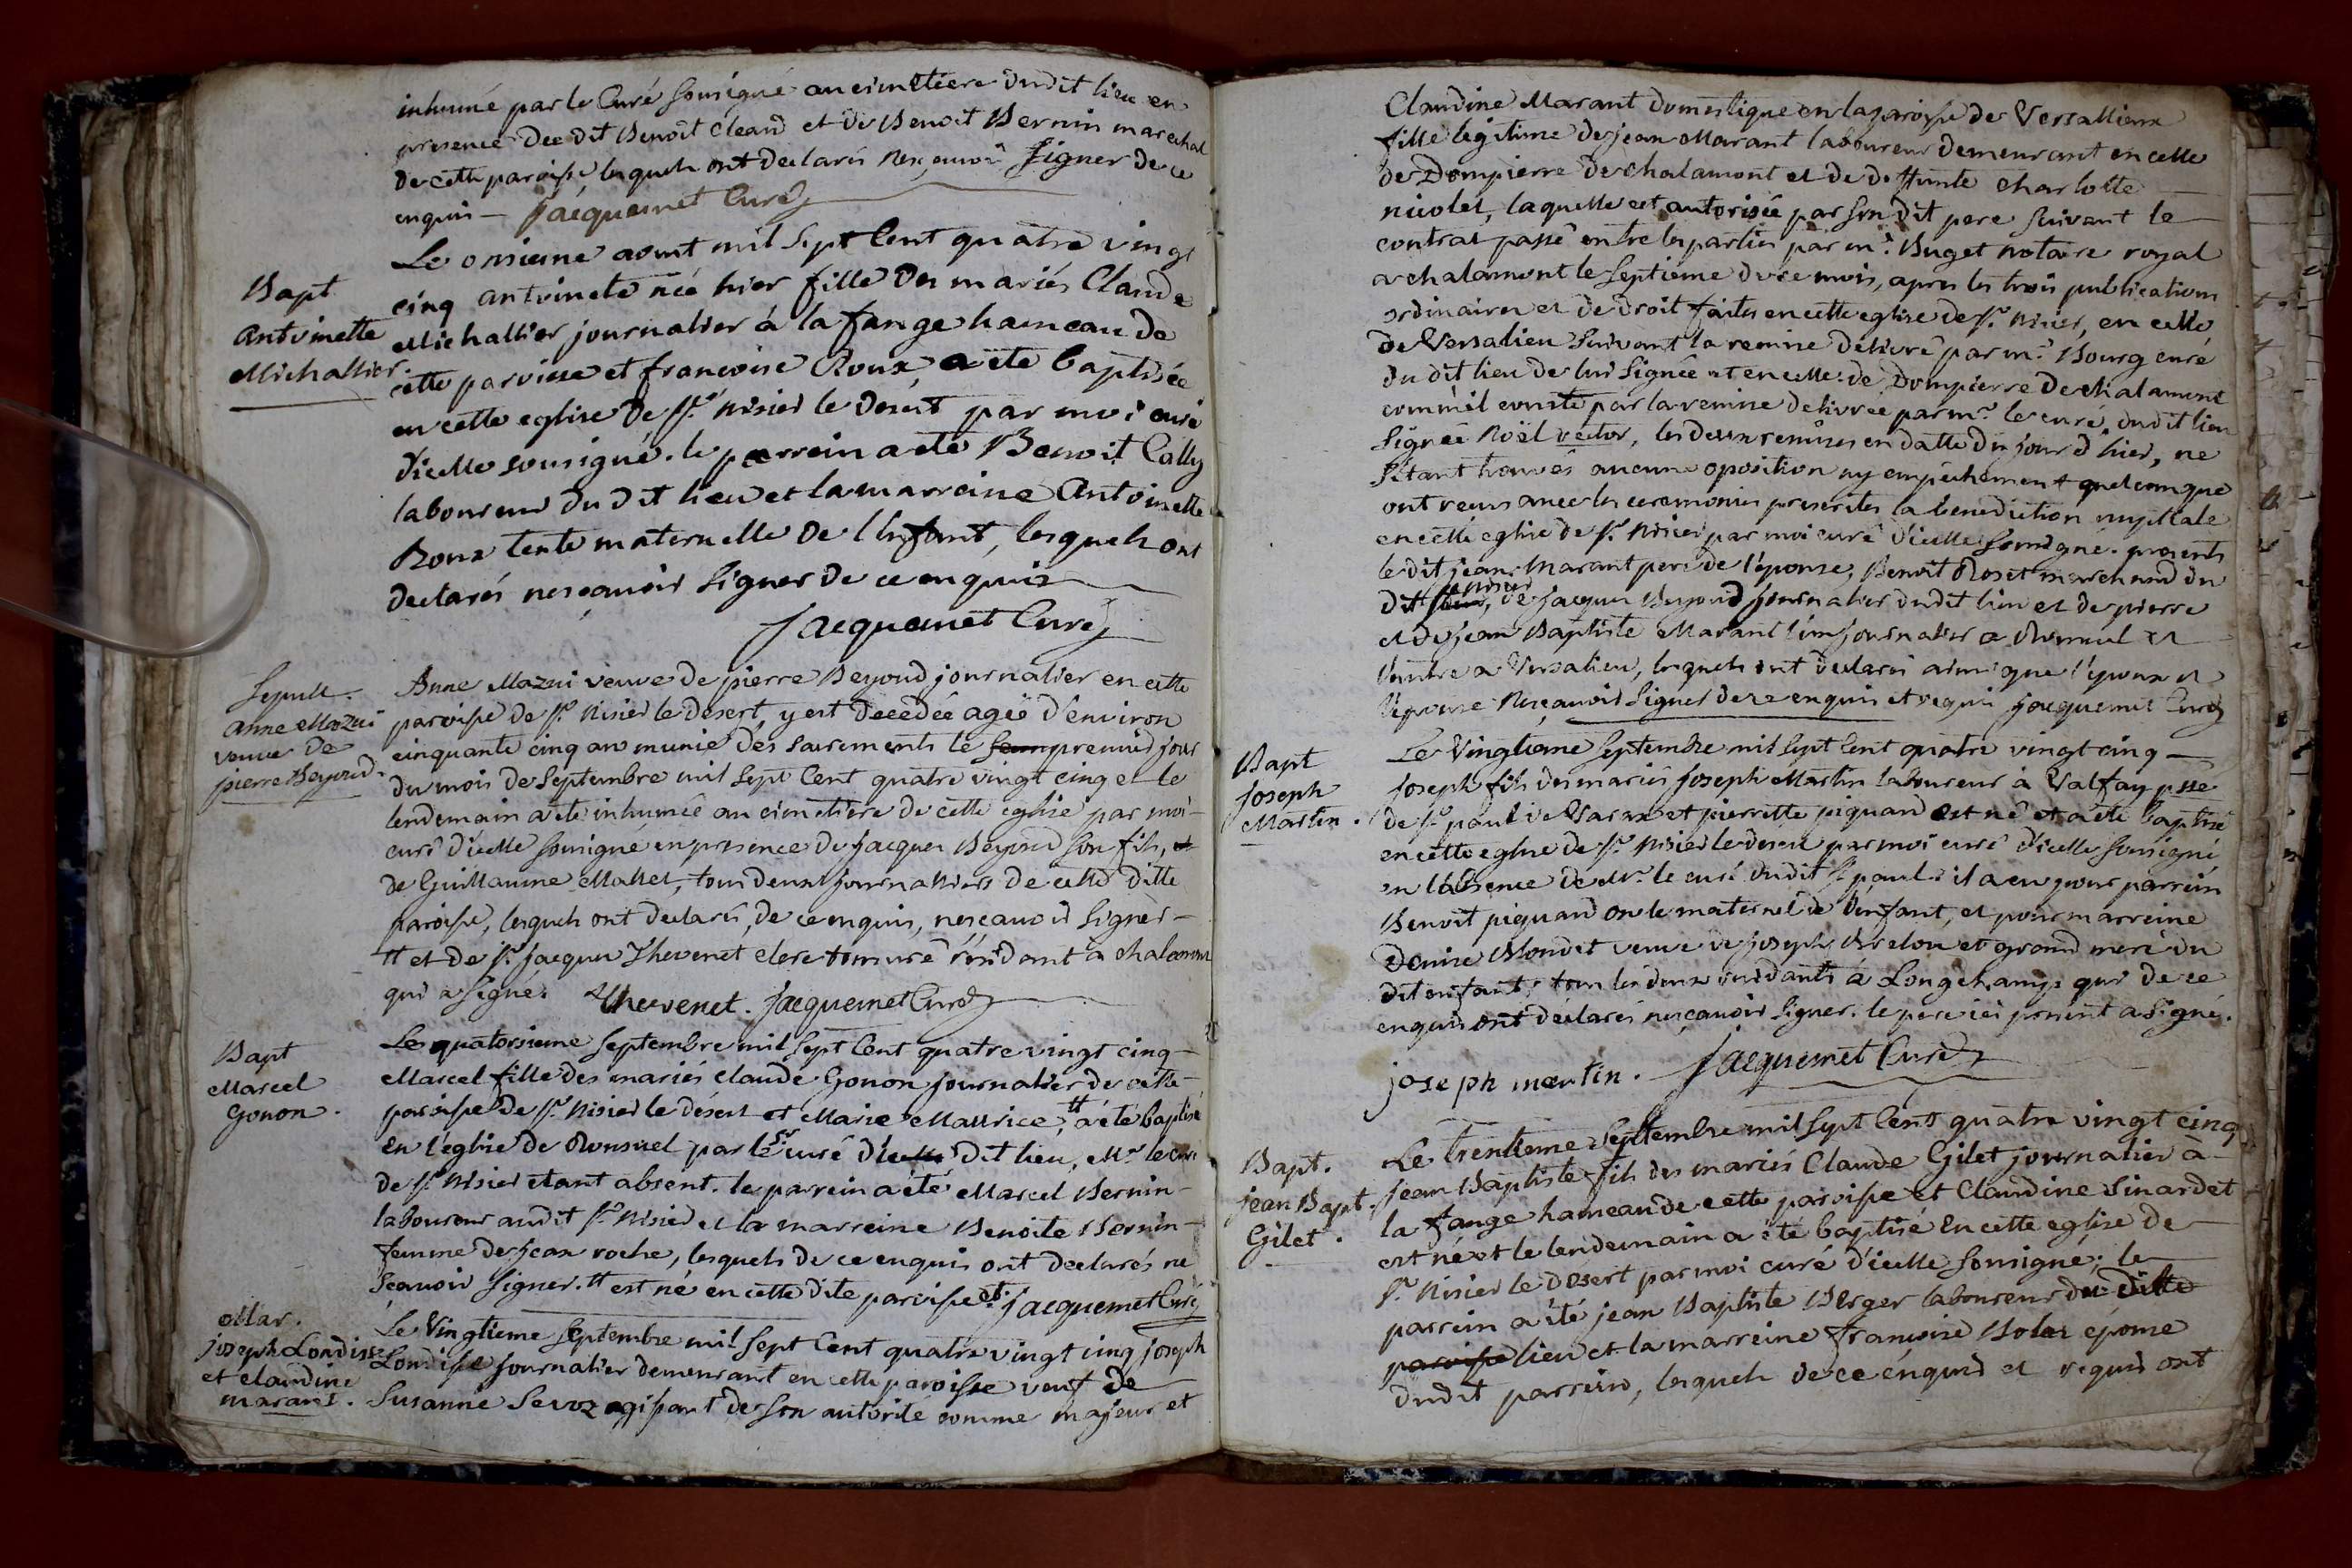 inhumé par le Curé sousigné au cimetiere dudit lieu en
presence dudit Benoit Cleand et de Benoit Bernin marechal
de cette paroisse lesquels ont declarés nesçavoir signer de ce
enquis — Jacquemet Curé
Bapt
Antoinette
Michallier.
Le onsieme aout mil sept Cent quatre vingt
cinq antoinete née hier fille des mariés Claude
Michallier journalier à la fange hameau de
cette paroisse et francoise Roux, a ete baptisée
en cette eglise de St. Nisier le desert par moi curé
d'icelle sousigné. le parrein a été Benoit Cally
laboureur du dit lieu et la marreine Antoinette
Roux tente maternelle de l'enfant, lesquels ont
declarés nescavoir signer de ce enquis
Jacquemet Curé
Sepult.
anne Mazui
veuve de
pierre Beyoud.
Anne Mazui veuve de pierre Beyoud journalier en cette
paroisse de St. Nisier le desert, y est decedée ageé d'environ
cinquante cinq ans munie des sacrements le premier jour
du mois de septembre mil sept Cent quatre vingt cinq et le
lendemain a ete inhumée au cimetiere de cette eglise par moi
curé d'icelle sousigné en presence de Jacques Beyoud son fils, et
de Guillaume Mallet, tous deux journaliers de cette ditte
paroisse, lesquels ont declarés, de ce enquis, nesçavoir signer —
tt et de Sr. Jacques Thevenet clerc tonsuré résidant a chalamont
qui a signé. Thevenet. Jacquemet Curé
Bapt
Marcel
Gonon.
Le quatorsieme septembre mil sept Cent quatre vingt cinq —
Marcel fille des mariés claude Gonon journalier de cette
paroisse de St. Nisier le désert et Marie Maurice, tt a été baptisé
en l'eglise de Ronsuel par le Sr curé d'icelle dit lieu, Mr le curé
de St. Nisier etant absent. le parrein a été Marcel Bernin —
laboureur audit St. Nisier et la marreine Benoite Bernin —
femme de Jean roche, lesquels de ce enquis ont declarés ne
sçavoir signer. tt est né en cette dite paroisse et. Jacquemet Curé
Mar.
joseph Londisse
et claudine
marant.
Le Vingtieme septembre mil sept Cent quatre vingt cinq joseph
Londisse journalier demeurant en cette paroisse veuf de
Susanne Sevoz agissant de son autorité comme majeur et
Claudine Marant domestique en la paroisse de Versallieux
fille legitime de jean Marant laboureur demeurant en celle
de Dompierre de chalamont et de deffunte charlotte
nicolet, laquelle est autorisée par son dit pere suivant le
contrat passé entre les parties par me. Buget notaire royal
a chalamont le septieme de ce mois, apres les trois publications
ordinaires et de droit faites en cette eglise de St. Nisier, en celle
de Versalieu suivant la remise delivré par mr. Bourg curé
du dit lieu de lui signée et en celle de Dompierre de chalamont
comm'il conste par la remise delivrée par mr. le curé dudit lieu
signée Noël rector, les deux remises en datte du jour d'hier, ne
s'étant trouvés aucune oposition ny empêchement quelconque
ont reçus avec les ceremonies prescrites la benediction nuptiale
en cette eglise de St. Nisier par moi curé d'icelle sousigné. presents
le dit jean Marant pere de l'épouse, Benoit Roset marchand du
dit lieu, de Jacques Beyoud journalier dudit lieu et de pierre
et de jean Baptiste Marant l'un journalier a Ronsuel et
l'autre a Versalieu, lesquels ont declarés ainsi que l'epoux et
l'epouse nesçavoir signer de ce enquis et requis Jacquemet Curé
Bapt
Joseph
Martin.
Le Vingtieme septembre mil sept Cent quatre vingt cinq —
Joseph fils des mariés joseph Martin laboureur à Valfay psse
de St. paul de Varax et pierrette piquand est né et a été baptisé
en cette eglise de St. Nisier le desert par moi curé d'icelle sousigné
en l'absence de Mr. le curé dudit St paul. il a eu pour parrein
Benoit piquand oncle maternel de l'enfant, et pour marreine
Denise Mondet veuve de joseph Breton et grand mere du
dit enfant, tous les deux residants à Longchamp qui de ce
enquis ont déclarés nesçavoir signer. le pere ici present a signé.
joseph martin. Jacquemet Curé
Bapt.
Jean Bapt.
Gilet.
Le Trentieme septembre mil sept Cent quatre vingt cinq
Jean Baptiste fils des mariés Claude Gilet journalier à
la fange hameau de cette paroisse et Claudine Sinardet
est né et le lendemain a été baptisé en cette eglise de
St. Nisier le désert par moi curé d'icelle sousigné; le
parrein a été jean Baptiste Berger laboureur du ditte
paroisse lieu et la marreine francoise Bolas épouse
dudit parrein, lesquels de ce enquis et requis ont